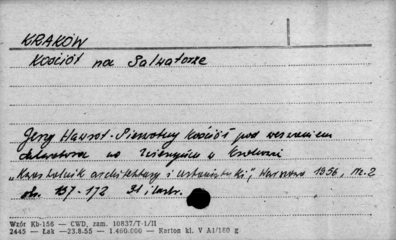 KRAKÓW
Kościół na Salwatorze
Jerzy Hawrot - Pierwotny kościół pod wezwaniem
Salwatora na Zwierzyńcu w Krakowie
"Kwartalnik architektury i urbanistyki", Warszawa 1956, nr. 2
str. 157-172 31 ilustr.
Wzór Kb-156 — CWD, zam. 10837/T-1/II
2445 — Łek —23.8.55 — 1.400.000 — Karton kl. V A1/160 g